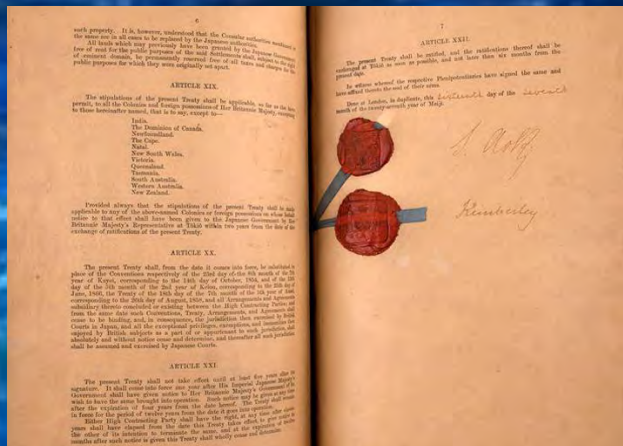 6
such property. It is, however, understood that the Consular authorities
the same are in all cases to be replaced by the Japanese authorities.
All lands which may previously have been granted by the Japanese Government
free of rent for the public purposes of the said Settlements shall, subject to the right
of eminent domain, be permanently reserved free of all taxes and charges for the
public purposes for which they were originally set apart.
ARTICLE XIX.
The stipulations of the present Treaty shall be applicable, so far as the laws
permit, to all the Colonies and foreign possessions of Her Britannic Majesty, excepting
to those hereinafter named, that is to say, except to—
India.
The Dominion of Canada.
Newfoundland.
The Cape.
Natal.
New South Wales.
Victoria.
Queensland.
Tasmania.
South Australia.
Western Australia.
New Zealand.
Provided always that the stipulations of the present Treaty shall be made
applicable to any of the above-named Colonies or foreign possessions on whose behalf
notice to that effect shall have been given to the Japanese Government by Her
Britannic Majesty's Representative at Tôkiô within two years from the date of the
exchange of ratifications of the present Treaty.
ARTICLE XX.
The present Treaty shall, from the date it comes into force, be substituted in
place of the Conventions respectively of the 23rd day of the 8th month of the 7th
year of Kayei, corresponding to the 14th day of October, 1854, and of the 13th
day of the 5th month of the 2nd year of Keiou, corresponding to the 25th day of
June, 1866, the Treaty of the 18th day of the 7th month of the 5th year of Ansei,
corresponding to the 26th day of August, 1858, and all Arrangements and Agreements
subsidiary thereto concluded or existing between the High Contracting Parties; and
from the same date such Conventions, Treaty, Arrangements, and Agreements shall
cease to be binding, and, in consequence, the jurisdiction then exercised by British
Courts in Japan, and all the exceptional privileges, exemptions, and immunities then
enjoyed by British subjects as a part of or appurtenant to such jurisdiction, shall
absolutely and without notice cease and determine, and thereafter all such jurisdiction
shall be assumed and exercised by Japanese Courts.
ARTICLE XXI.
The present Treaty shall not take effect until at least five years after its
signature. It shall come into force one year after His Imperial Japanese Majesty's
Government shall have given notice to Her Britannic Majesty's Government of its
wish to have the same brought into operation. Such notice may be given at any time
after the expiration of four years from the date hereof. The Treaty shall remain
in force for the period of twelve years from the date it goes into operation.
Either High Contracting Party shall have the right, at any time after eleven
years shall have elapsed from the date this Treaty takes effect, to give notice to
the other of its intention to terminate the same, and at the expiration of twelve
months after such notice is given this Treaty shall wholly cease and determine.
7
ARTICLE XXII.
The present Treaty shall be ratified, and the ratifications thereof shall be
exchanged at Tôkiô as soon as possible, and not later than six months from the
present date.
In witness whereof the respective Plenipotentiaries have signed the same and
have affixed thereto the seal of their arms.
Done at London, in duplicate, this sixteenth day of the seventh
month of the twenty-seventh year of Meiji.
Kimberley